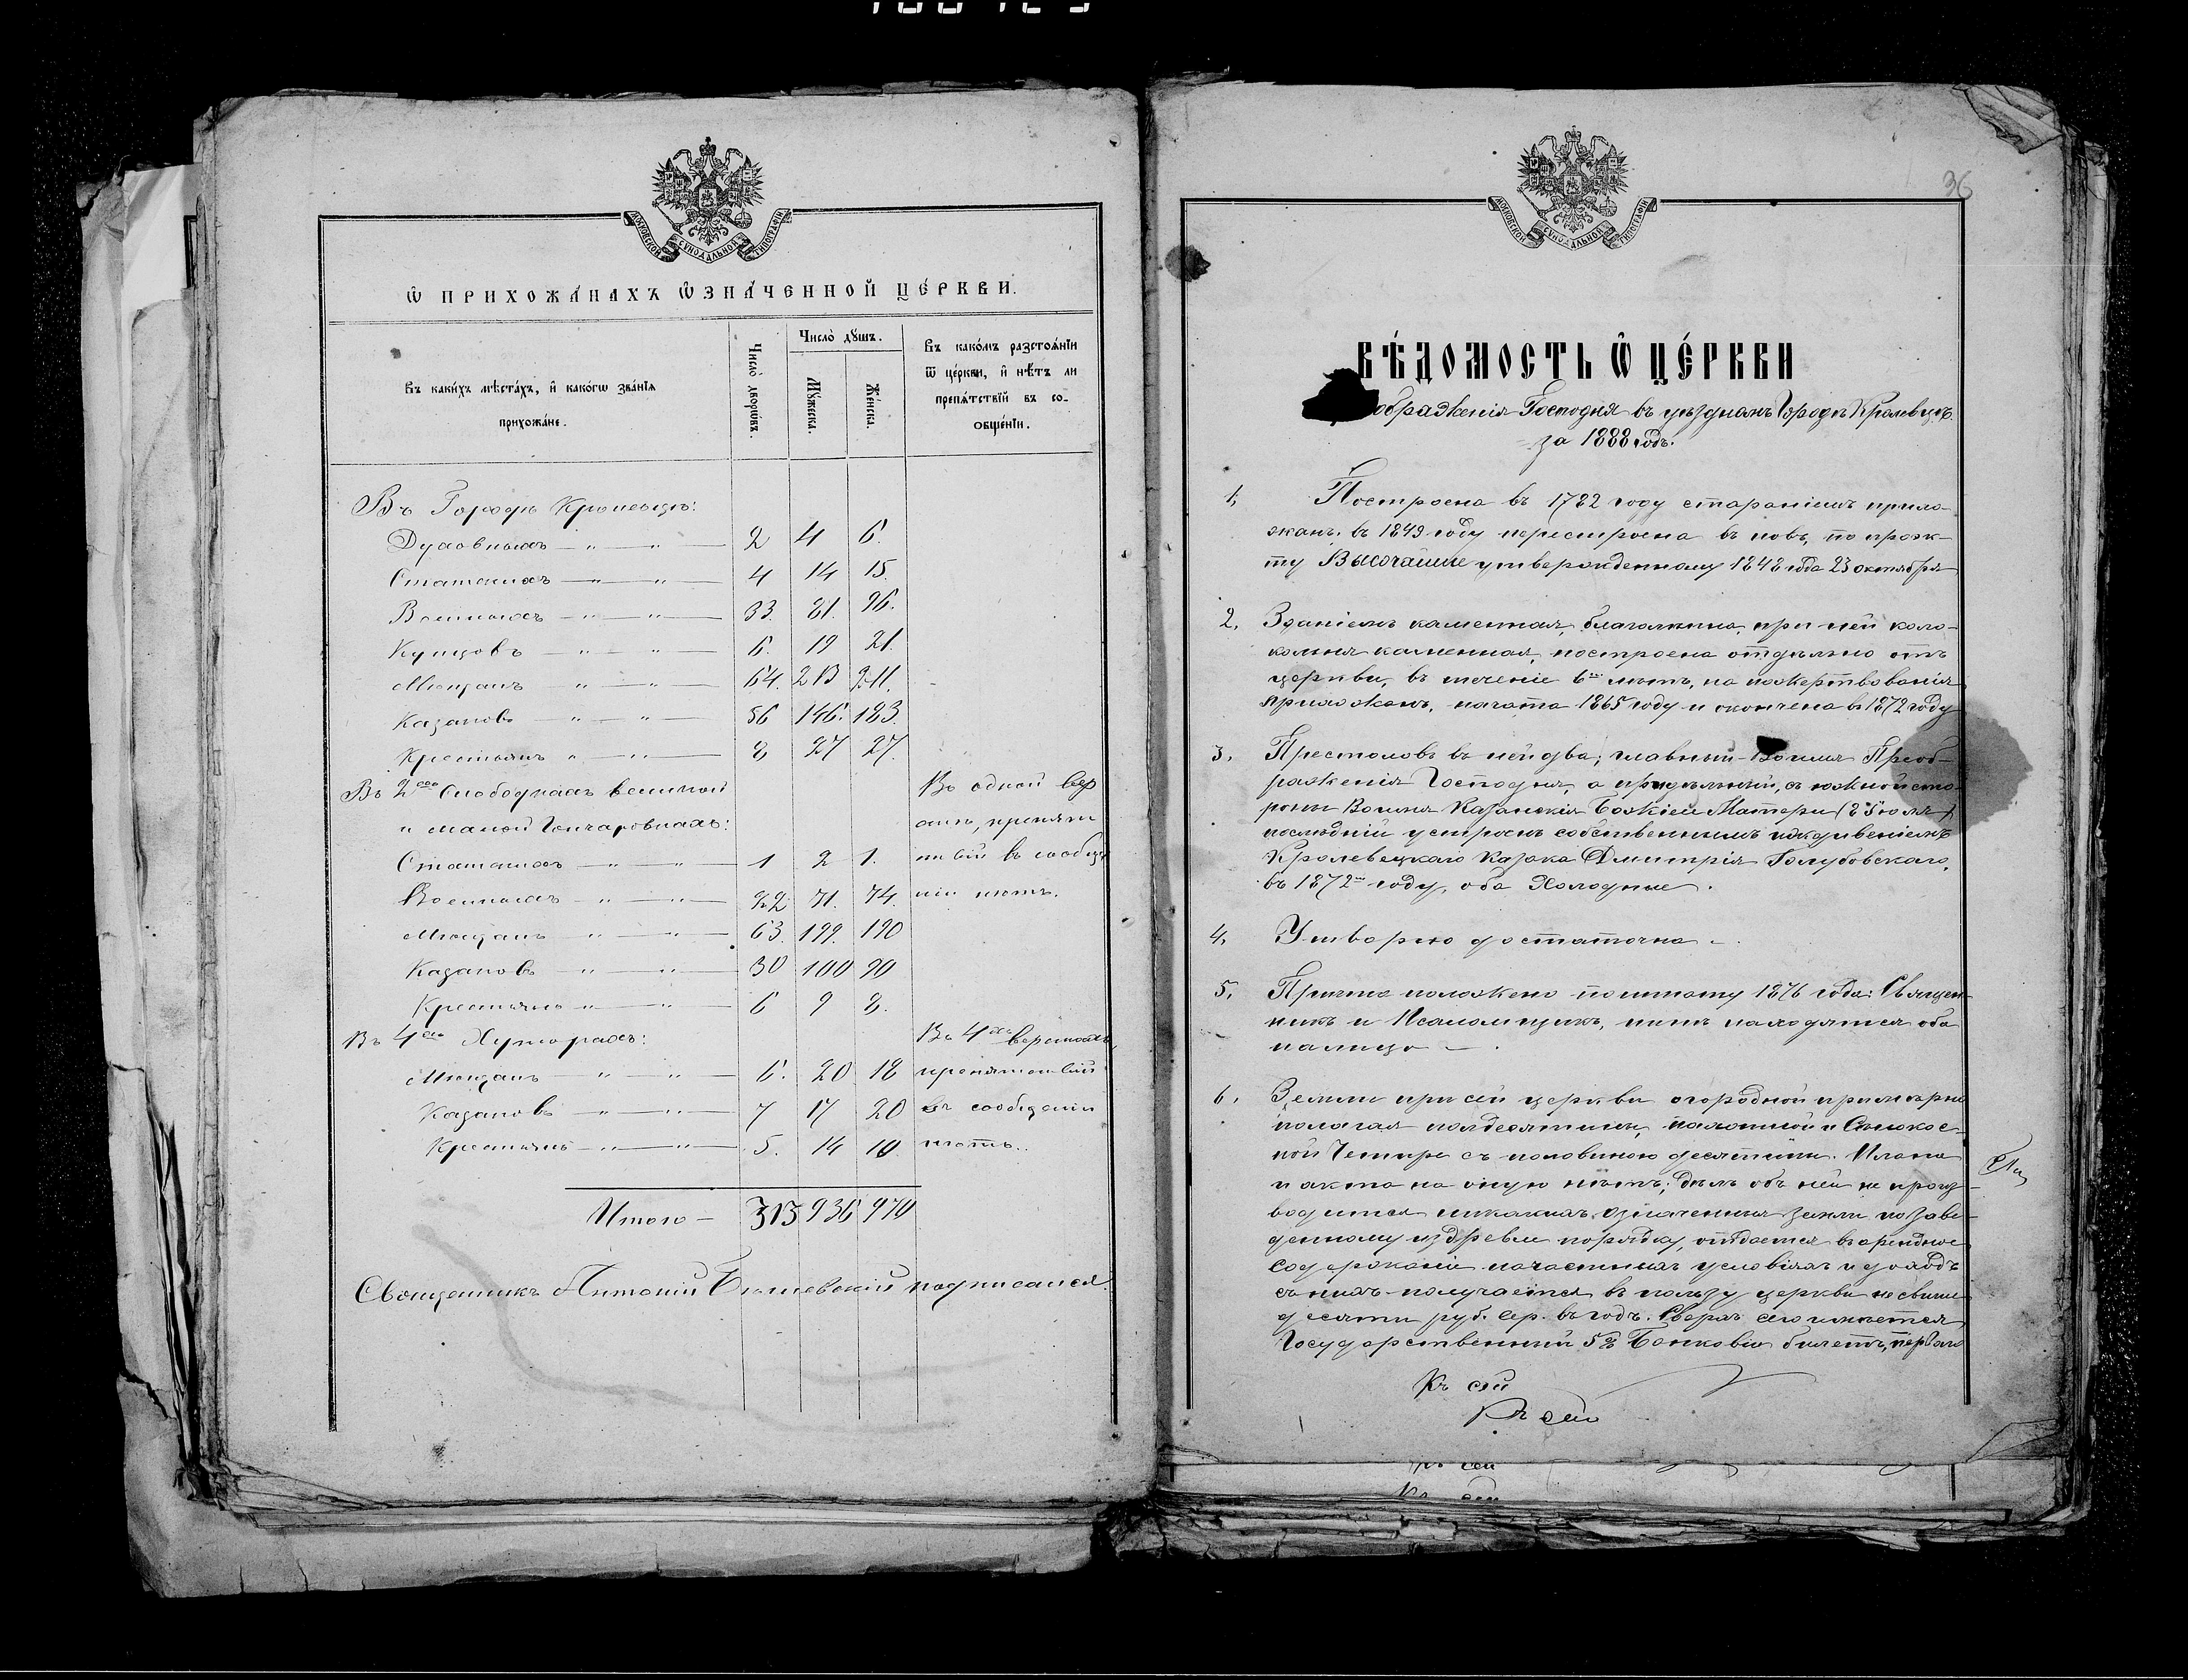 МОСКОВСКОЙ СѴНОДАЛЬНОЙ ТИПОГРАФІИ
Ѡ ПРИХОЖА́НАХЪ ѠЗНА́ЧЕННОЙ ЦЕ́РКВИ.
Въ каки́хъ мѣста́хъ, и како́гѡ зва́нїѧ прихожа́не.
Число̀ дворѡ́въ.
Число̀ дꙋ́шъ.
Мꙋ́жеска.
Же́нска.
Въ како́мъ разстоѧ́нїи
ѿ це́ркви, и нѣ́тъ ли
препѧ́тствїй въ со-
ѻбще́нїи.
Въ Городѣ Кролевцѣ:
Духовныхъ — „ — „ — 2 4 6.
Статскихъ — „ — „ — 4 14 15.
Военныхъ — „ — „ — 33. 81. 96.
Купцовъ — „ — „ — 6. 19 21.
Мѣщанъ — „ — „ — 64. 213 211.
Казаковъ — „ — „ — 56 146. 183.
Крестьянъ „ — „ — 8 27 27.
Въ 2хъ Слободкахъ великой
и малой Гончаровкахъ:
Въ одной вер
Статскихъ — „ — „ — 1 2 1.
Военныхъ — „ — „ — 22 71. 74.
ніи нѣтъ.
Мѣщанъ „ — „ — 63. 199. 190
Казаковъ — „ — „ — 30 100 90
Крестьянъ „ — „ — 6 9 8.
Въ 4хъ Хуторахъ:
Въ 4хъ верстахъ,
Мѣщанъ — „ — „ — 6. 20 18 препятствій
Казаковъ — „ — „ — 7 17 20 въ сообщеніи
Крестьянъ — „ — „ — 5. 14 10 нѣтъ.
Итого — 313 936 970
Священникъ Антоній подписался.
36
МОСКОВСКОЙ СѴНОДАЛЬНОЙ ТИПОГРАФІИ
ВѢ́ДОМОСТЬ Ѡ ЦЕ́РКВИ
ображенія Господня въ уѣздномъ Городѣ Кролевцѣ.
за 1888 годъ.
1, Построена въ 1782 году стараніемъ прихо-
жанъ. въ 1849 году перестроена въ новь, по проэк-
ту Высочайше утвержденному 1848 года 23 октября
2, Зданіемъ каменная, благолѣпна, при ней коло-
кольня каменная, построена отдѣльно отъ
церкви, въ теченіе 6ти лѣтъ, на пожертвованія
прихожанъ. начата 1865 году и окончена въ 1872 году
3, Престоловъ въ ней два; главный Воимя Преоб-
раженія Господня, а придѣльный, съ южной сто
роны Воимя Казанскія Божіей Матери (8 Іюля)
послѣдній устроенъ собственнымъ иждивеніемъ
Кролевецкаго Казака Дмитрія Голубовскаго,
въ 1872м году, оба Холодные.
4, Утварью достаточна —.
5, Причта положено по штату 1876 года: Священ-
никъ и Псаломщикъ, кои находятся оба
на лицо —.
6, Земли при сей церкви огородной примѣрно
полагая полдесятины, пахатной и Сѣнокос-
ной Четыре съ половиною десятины. Плана
и акта на оную нѣтъ; дѣлъ объ ней не произ-
водится никакихъ, означенная земля по заве-
денному издревле порядку, отдается въ арендное
содержаніе на частныхъ условіяхъ и доходъ
съ нихъ получается въ пользу церкви не свыше
десяти руб. сер. въ годъ. Сверхъ сего имѣется
Государственный 5% Банковый билетъ, перваго
Къ сей
Къ сей
Къ сей
Къ сей